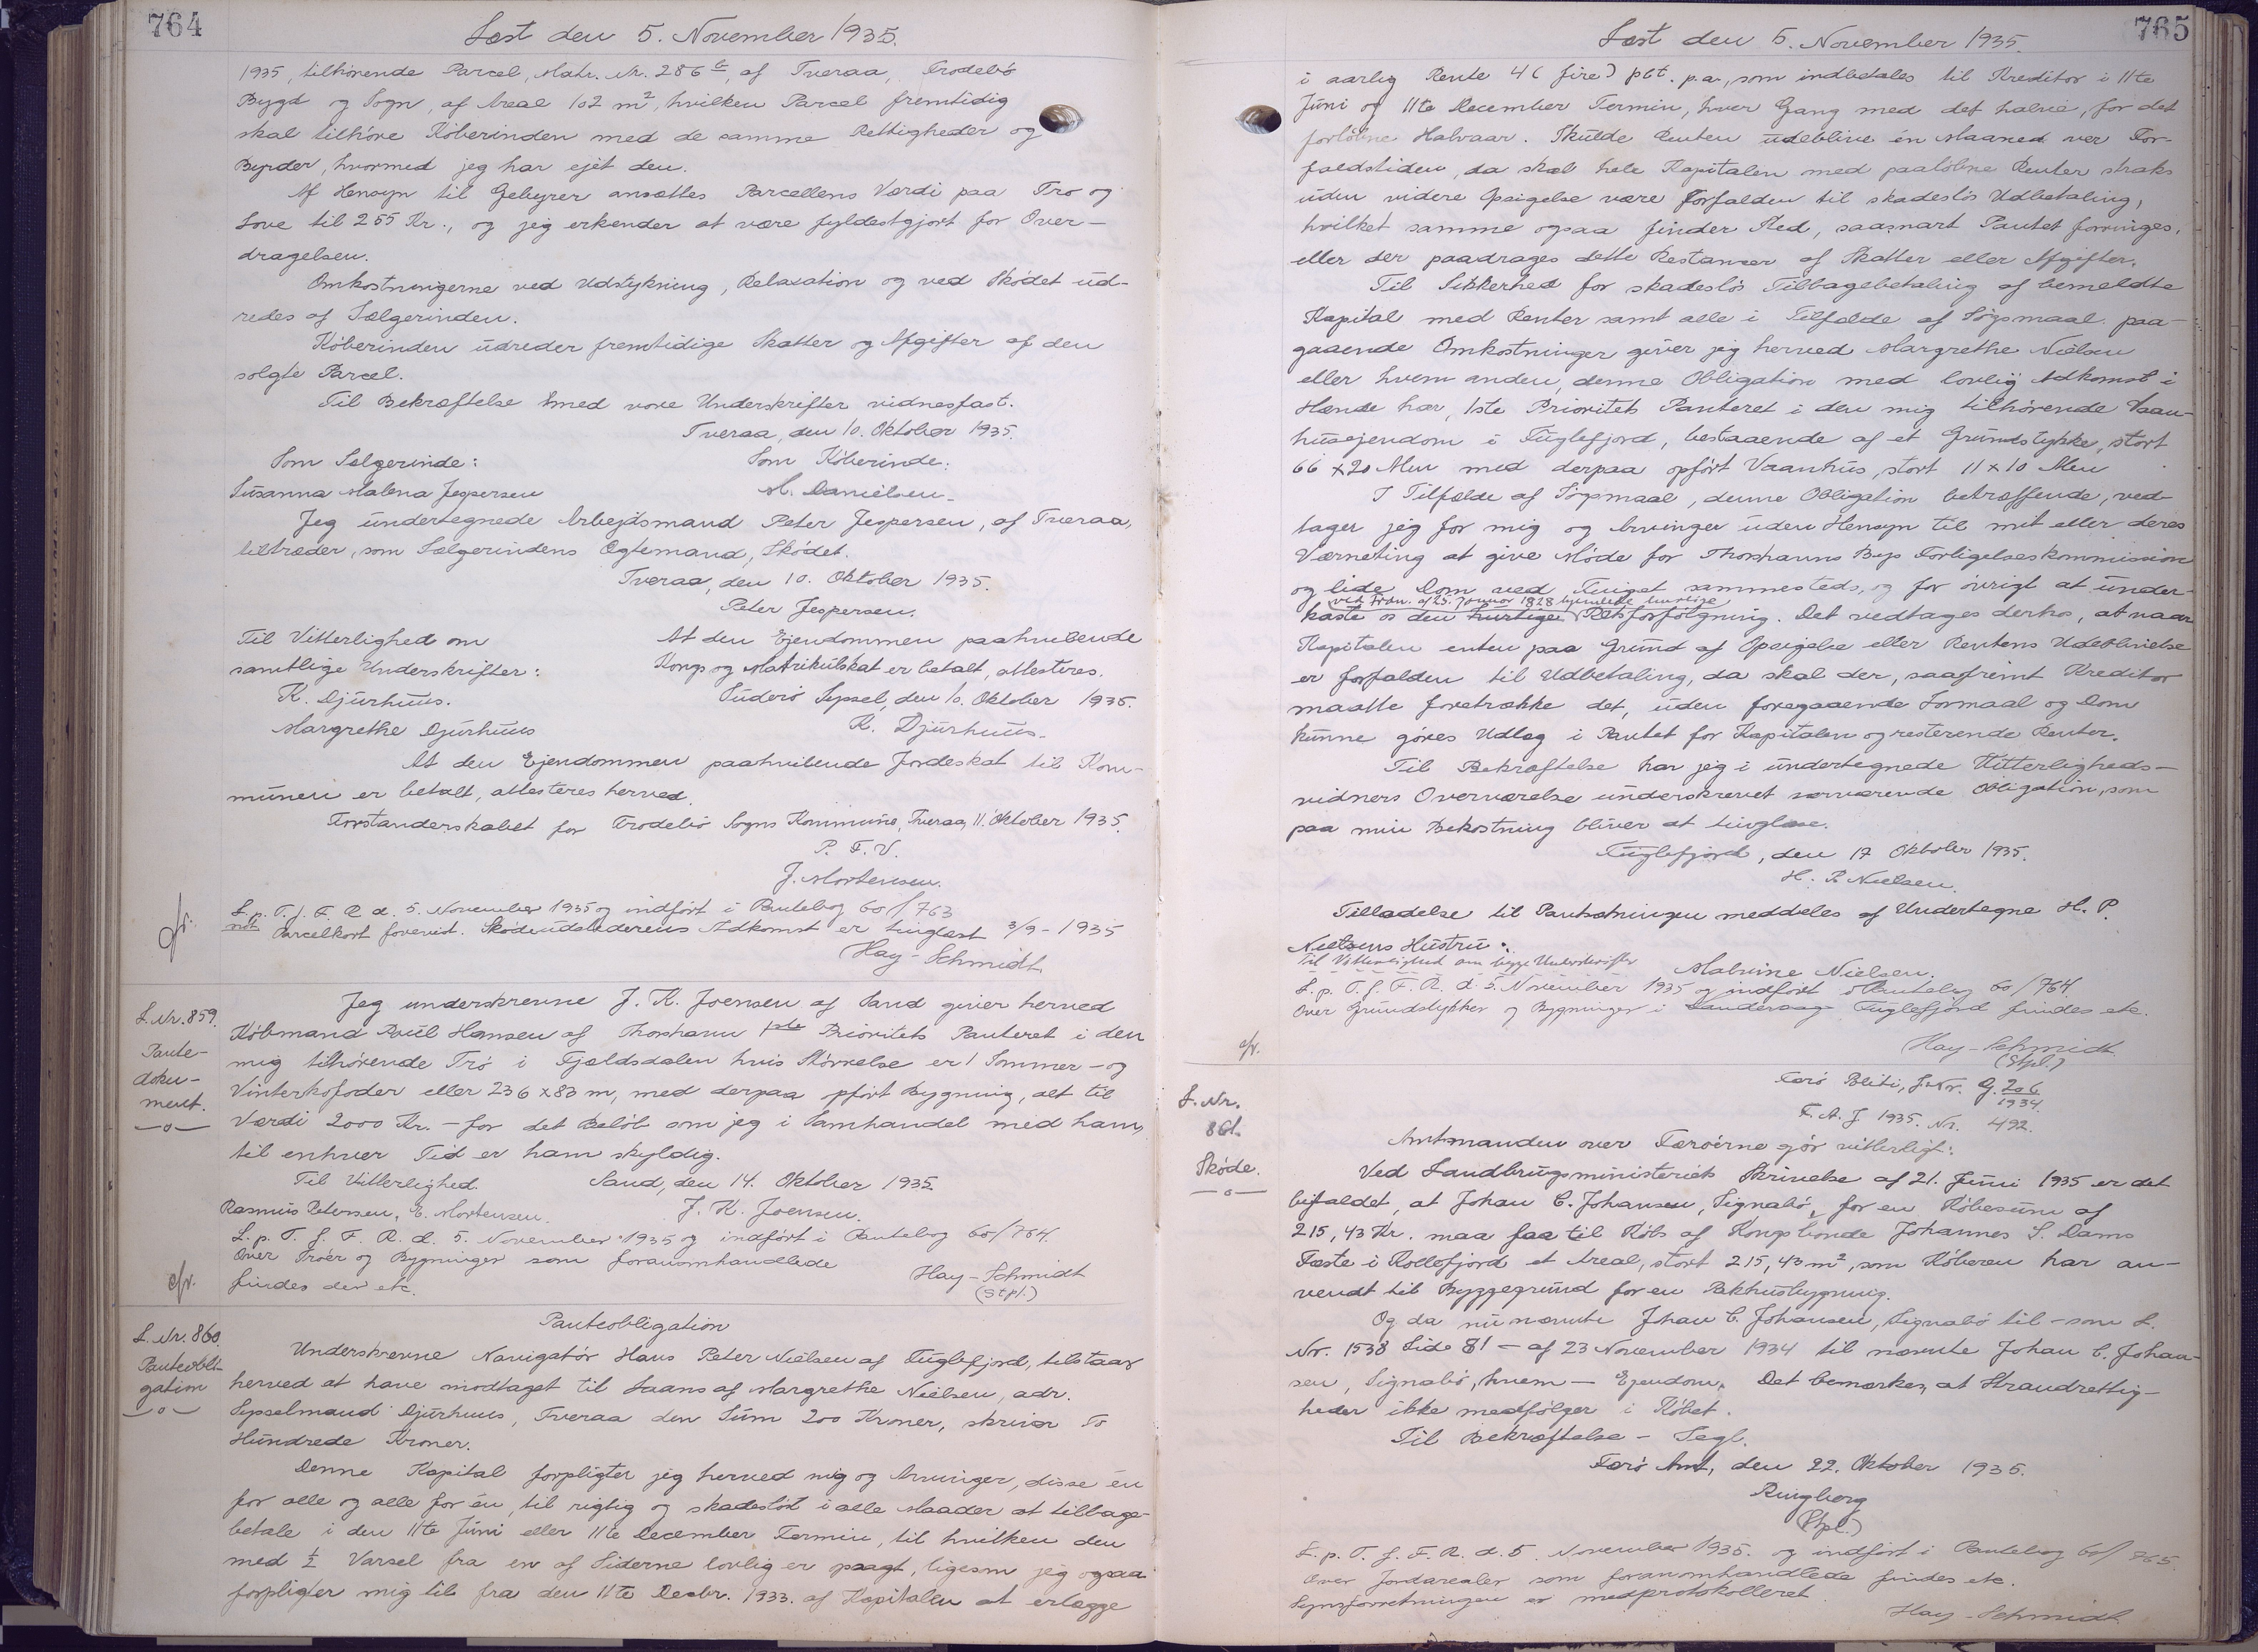 764
Læst den 5. November 1935.
1935, tilhørende Parcel, Matr. Nr. 286 b, af Tveraa, Frodebø
Bygd og Sogn, af Areal 102 m², hvilken Parcel fremtidig
skal tilhøre Køberinden med de samme Rettigheder og
Byrder, hvormed jeg har ejet den.
Af Hensyn til Gebyrer ansættes Parcellens Værdi paa Tro og
Love til 255 Kr., og jeg erkender at være fyldestgjort for Over-
dragelsen.
Omkostningerne ved Udstykning, Relaxation og ved Skødet ud-
redes af Sælgerinden.
Køberinden udreder fremtidige Skatter og Afgifter af den
solgte Parcel.
Til Bekræftelse med vore Underskrifter vidnesfast.
Tveraa, den 10. Oktober 1935.
Som Sælgerinde: Som Køberinde:
Susanna Malena Jespersen M. Danielsen
Jeg undertegnede Arbejdsmand Peter Jespersen, af Tveraa,
tiltræder, som Sælgerindens Ægtemand, Skødet.
Tveraa, den 10. Oktober 1935.
Peter Jespersen.
Til Vitterlighed om At den Ejendommen paahvilende
samtlige Underskrifter: Kongs og Matrikulskat er betalt, attesteres.
K. Djurhuus. Suderø Syssel, den 10. Oktober 1935.
Margrethe Djurhuus K. Djurhuus.
At den Ejendommen paahvilende Jordeskat til Kom-
munen er betalt, attesteres herved.
Forstanderskabet for Frodebø Sogns Kommune, Tveraa, 11. Oktober 1935.
P. F. V.
J. Mortensen.
L. p. T. f. F. R. d. 5. November 1935 og indført i Pantebog 60/763
Parcelkort forevist. Skødeudstederens Adkomst er tinglæst 3/9 - 1935
Hay-Schmidt
L. Nr. 859.
Pante-
doku-
ment.
Jeg underskrevne J. K. Joensen af Sand giver herved
Købmand Poul Hansen af Thorshavn 1ste Prioritets Panteret i den
mig tilhørende Trø i Fjeldsdalen hvis Størrelse er 1 Sommer- og
Vinterkofoder eller 236 x 83 m, med derpaa opført Bygning, alt til
Værdi 2000 Kr. - for det Beløb som jeg i Samhandel med ham,
til enhver Tid er ham skyldig.
Til Vitterlighed. Sand, den 14. Oktober 1935.
Rasmus Petersen, E. Mortensen. J. K. Joensen.
L. p. T. f. F. R. d. 5. November 1935 og indført i Pantebog 60/764.
Over Trøer og Bygninger som foranomhandlede
findes der etc. Hay-Schmidt
(Stpl.)
cfr.
L. Nr. 860.
Panteobli-
gation
Panteobligation
Underskrevne Navigatør Hans Peter Nielsen af Fuglefjord, tilstaar
herved at have modtaget til Laans af Margrethe Nielsen, adr.
Sysselmand Djurhuus, Tveraa den Sum 200 Kroner, skriver To
Hundrede Kroner.
Denne Kapital forpligter jeg herved mig og Arvinger, disse én
for alle og alle for én, til rigtig og skadesløst i alle Maader at tilbage-
betale i den 11te Juni eller 11te December Termin, til hvilken den
med ½ Varsel fra en af Siderne lovlig er opsagt, ligesom jeg ogsaa
forpligter mig til fra den 11te Decbr. 1933. af Kapitalen at erlægge
765
Læst den 5. November 1935.
i aarlig Rente 4 (fire) pCt. p.a., som indbetales til Kreditor i 11te
Juni og 11te December Termin, hver Gang med det halve, for det
forløbne Halvaar. Skulde Renten udeblive én Maaned over For-
faldstiden, da skal hele Kapitalen med paaløbne Renter straks
uden videre Opsigelse være forfalden til skadesløs Udbetaling,
hvilket samme ogsaa finder Sted, saasnart Pantet forringes,
eller der paadrages dette Restancer af Skatter eller Afgifter.
Til Sikkerhed for skadesløs Tilbagebetaling af bemeldte
Kapital med Renter samt alle i Tilfælde af Søgsmaal paa-
gaaende Omkostninger giver jeg herved Margrethe Nielsen
eller hvem anden, denne Obligation med lovlig Adkomst i
Hænde har, 1ste Prioritets Panteret i den mig tilhørende Vaan-
husejendom i Fuglefjord, bestaaende af et Grundstykke, stort
66 x 20 Alen med derpaa opført Vaanhus, stort 11 x 10 Alen
I Tilfælde af Søgsmaal, denne Obligation betræffende, ved-
tager jeg for mig og Arvinger uden Hensyn til mit eller deres
Værneting at give Møde for Thorshavns Byes Forligelseskommission
og lide Dom ved Tinget sammesteds, og for øvrigt at under-
ved Frdn. af 25. Januar 1828 hjemlede hurtige
kaste os den hurtige Retsforfølgning. Det vedtages derhos, at naar
Kapitalen enten paa Grund af Opsigelse eller Rentens Udeblivelse
er forfalden til Udbetaling, da skal der, saafremt Kreditor
maatte foretrække det, uden foregaaende Søgsmaal og Dom
kunne gøres Udlæg i Pantet for Kapitalen og resterende Renter.
Til Bekræftelse har jeg i undertegnede Vitterligheds-
vidners Overværelse underskrevet nærværende Obligation, som
paa min Bekostning bliver at tinglæse.
Fuglefjord, den 17 Oktober 1935.
H. P. Nielsen.
Tilladelse til Pantsætningen meddeles af Undertegne H. P.
Nielsens Hustru:
Til Vitterlighed om begge Underskrifter Malvine Nielsen.
L. p. T. f. F. R. d. 5. November 1935 og indført i Pantebog 60/764.
Over Grundstykker og Bygninger i Fuglefjord findes etc.
cfr. Hay-Schmidt
(Stpl.)
L. Nr.
861.
Skøde.
Færø Politi, J. Nr. G. 206/1934.
F. A. J 1935. Nr. 492.
Amtmanden over Færøerne gør vitterligt:
Ved Landbrugsministeriets Skrivelse af 21. Juni 1935 er det
bifaldet, at Johan C. Johansen, Signabø, for en Købesum af
215,43 Kr. maa faa til Køb af Kongsbonde Johannes S. Dams
Fæste i Kollefjord et Areal, stort 215,43 m², som Køberen har an-
vendt til Byggegrund for en Pakhusbygning.
Og da nu nævnte Johan C. Johansen, Signabø til - som L.
Nr. 1538 Side 81 - af 23 November 1934 til nævnte Johan C. Johan-
sen, Signabø, hvem - Ejendom. Det bemærkes, at Strandrettig-
heder ikke medfølger i Købet.
Til Bekræftelse - Segl.
Færø Amt, den 22. Oktober 1935.
Ringberg
(Stpl.)
L. p. T. f. F. R. d. 5. November 1935. og indført i Pantebog 60/765
Over Jordarealer som foranomhandlede findes etc.
Synsforretningen er medprotokolleret
Hay-Schmidt